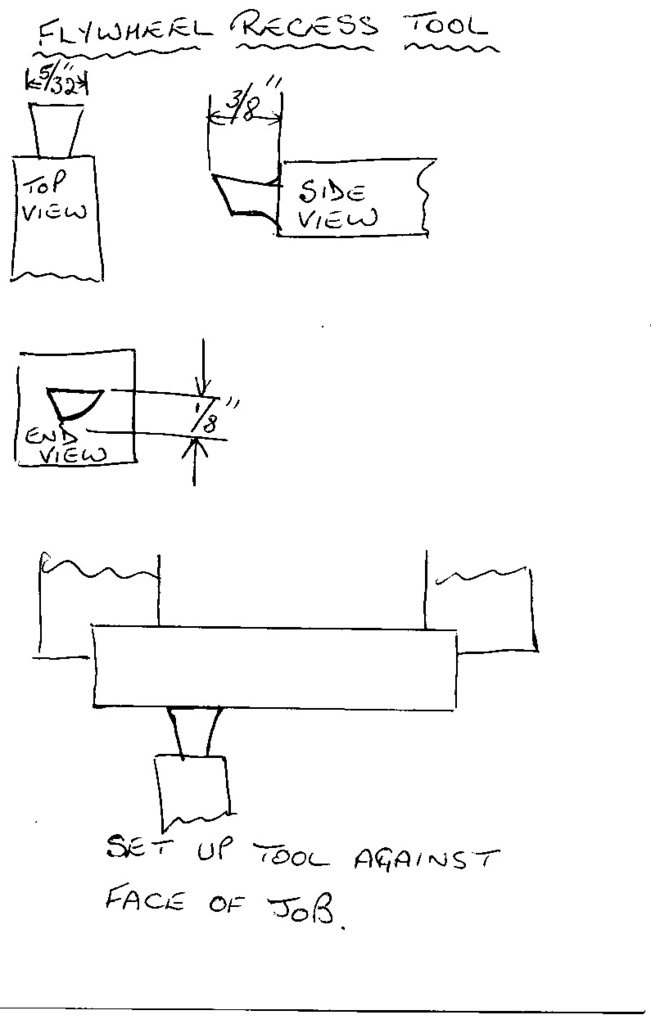 FLYWHEEL RECESS TOOL
5/32"
3/8"
TOP
VIEW
SIDE
VIEW
1/8"
END
VIEW
SET UP TOOL AGAINST
FACE OF JOB.